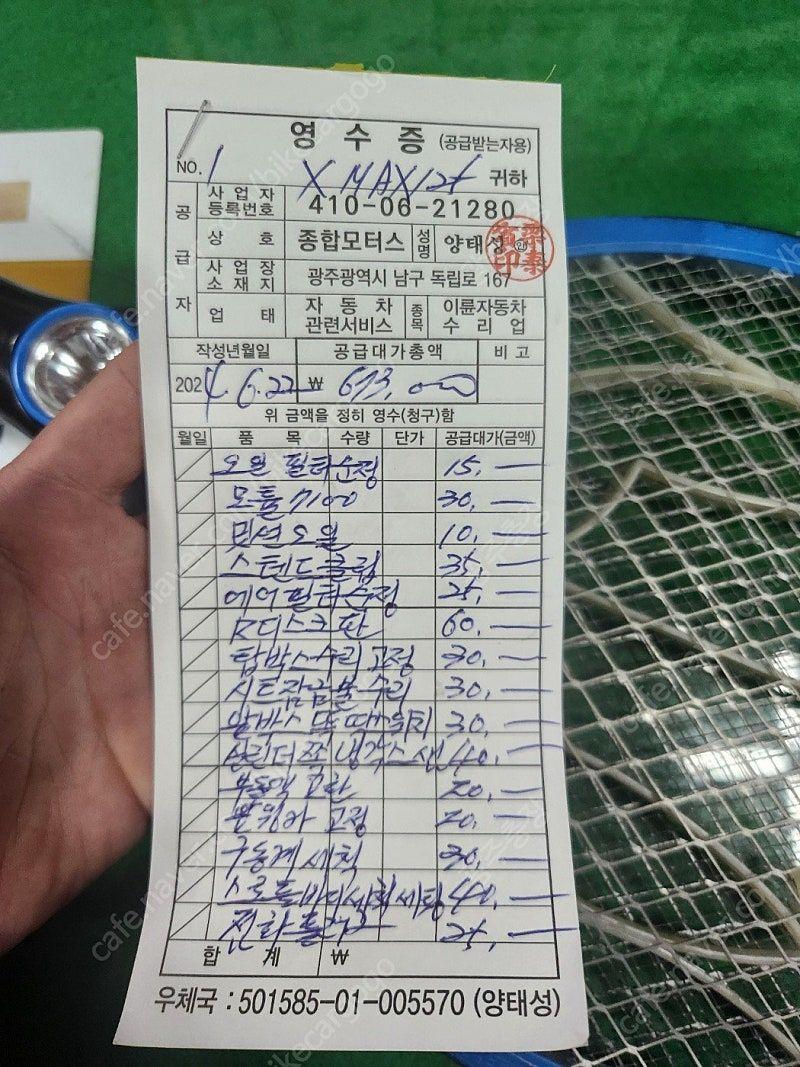 영 수 증 (공급받는자용)
NO. 1 X MAX 125 귀하
공급자
사업자등록번호 410-06-21280
상호 종합모터스 성명 양태성
사업장소재지 광주광역시 남구 독립로 167
업태 자동차관련서비스 종목 이륜자동차수리업
작성년월일 공급대가총액 비고
2024 6.22 ₩ 673,000
위 금액을 정히 영수(청구)함
월일 품목 수량 단가 공급대가(금액)
오일 필타순정 15,—
모튤 7100 30,—
밋션오일 10,—
스텐드클립 35,—
에어필타순정 25,—
R디스크판 60,—
탑박스수리고정 30,—
시트잠금불수리 30,—
앞박스 뚜껑 30,—
실린더쪽 냉각스센 40,—
부동액 교환 20,—
고정 20,—
구동계 세척 30,—
스로틀바디세척세팅 40,—
25,—
합계 ₩
우체국 : 501585-01-005570 (양태성)
cafe.naver.com/bikecargogo